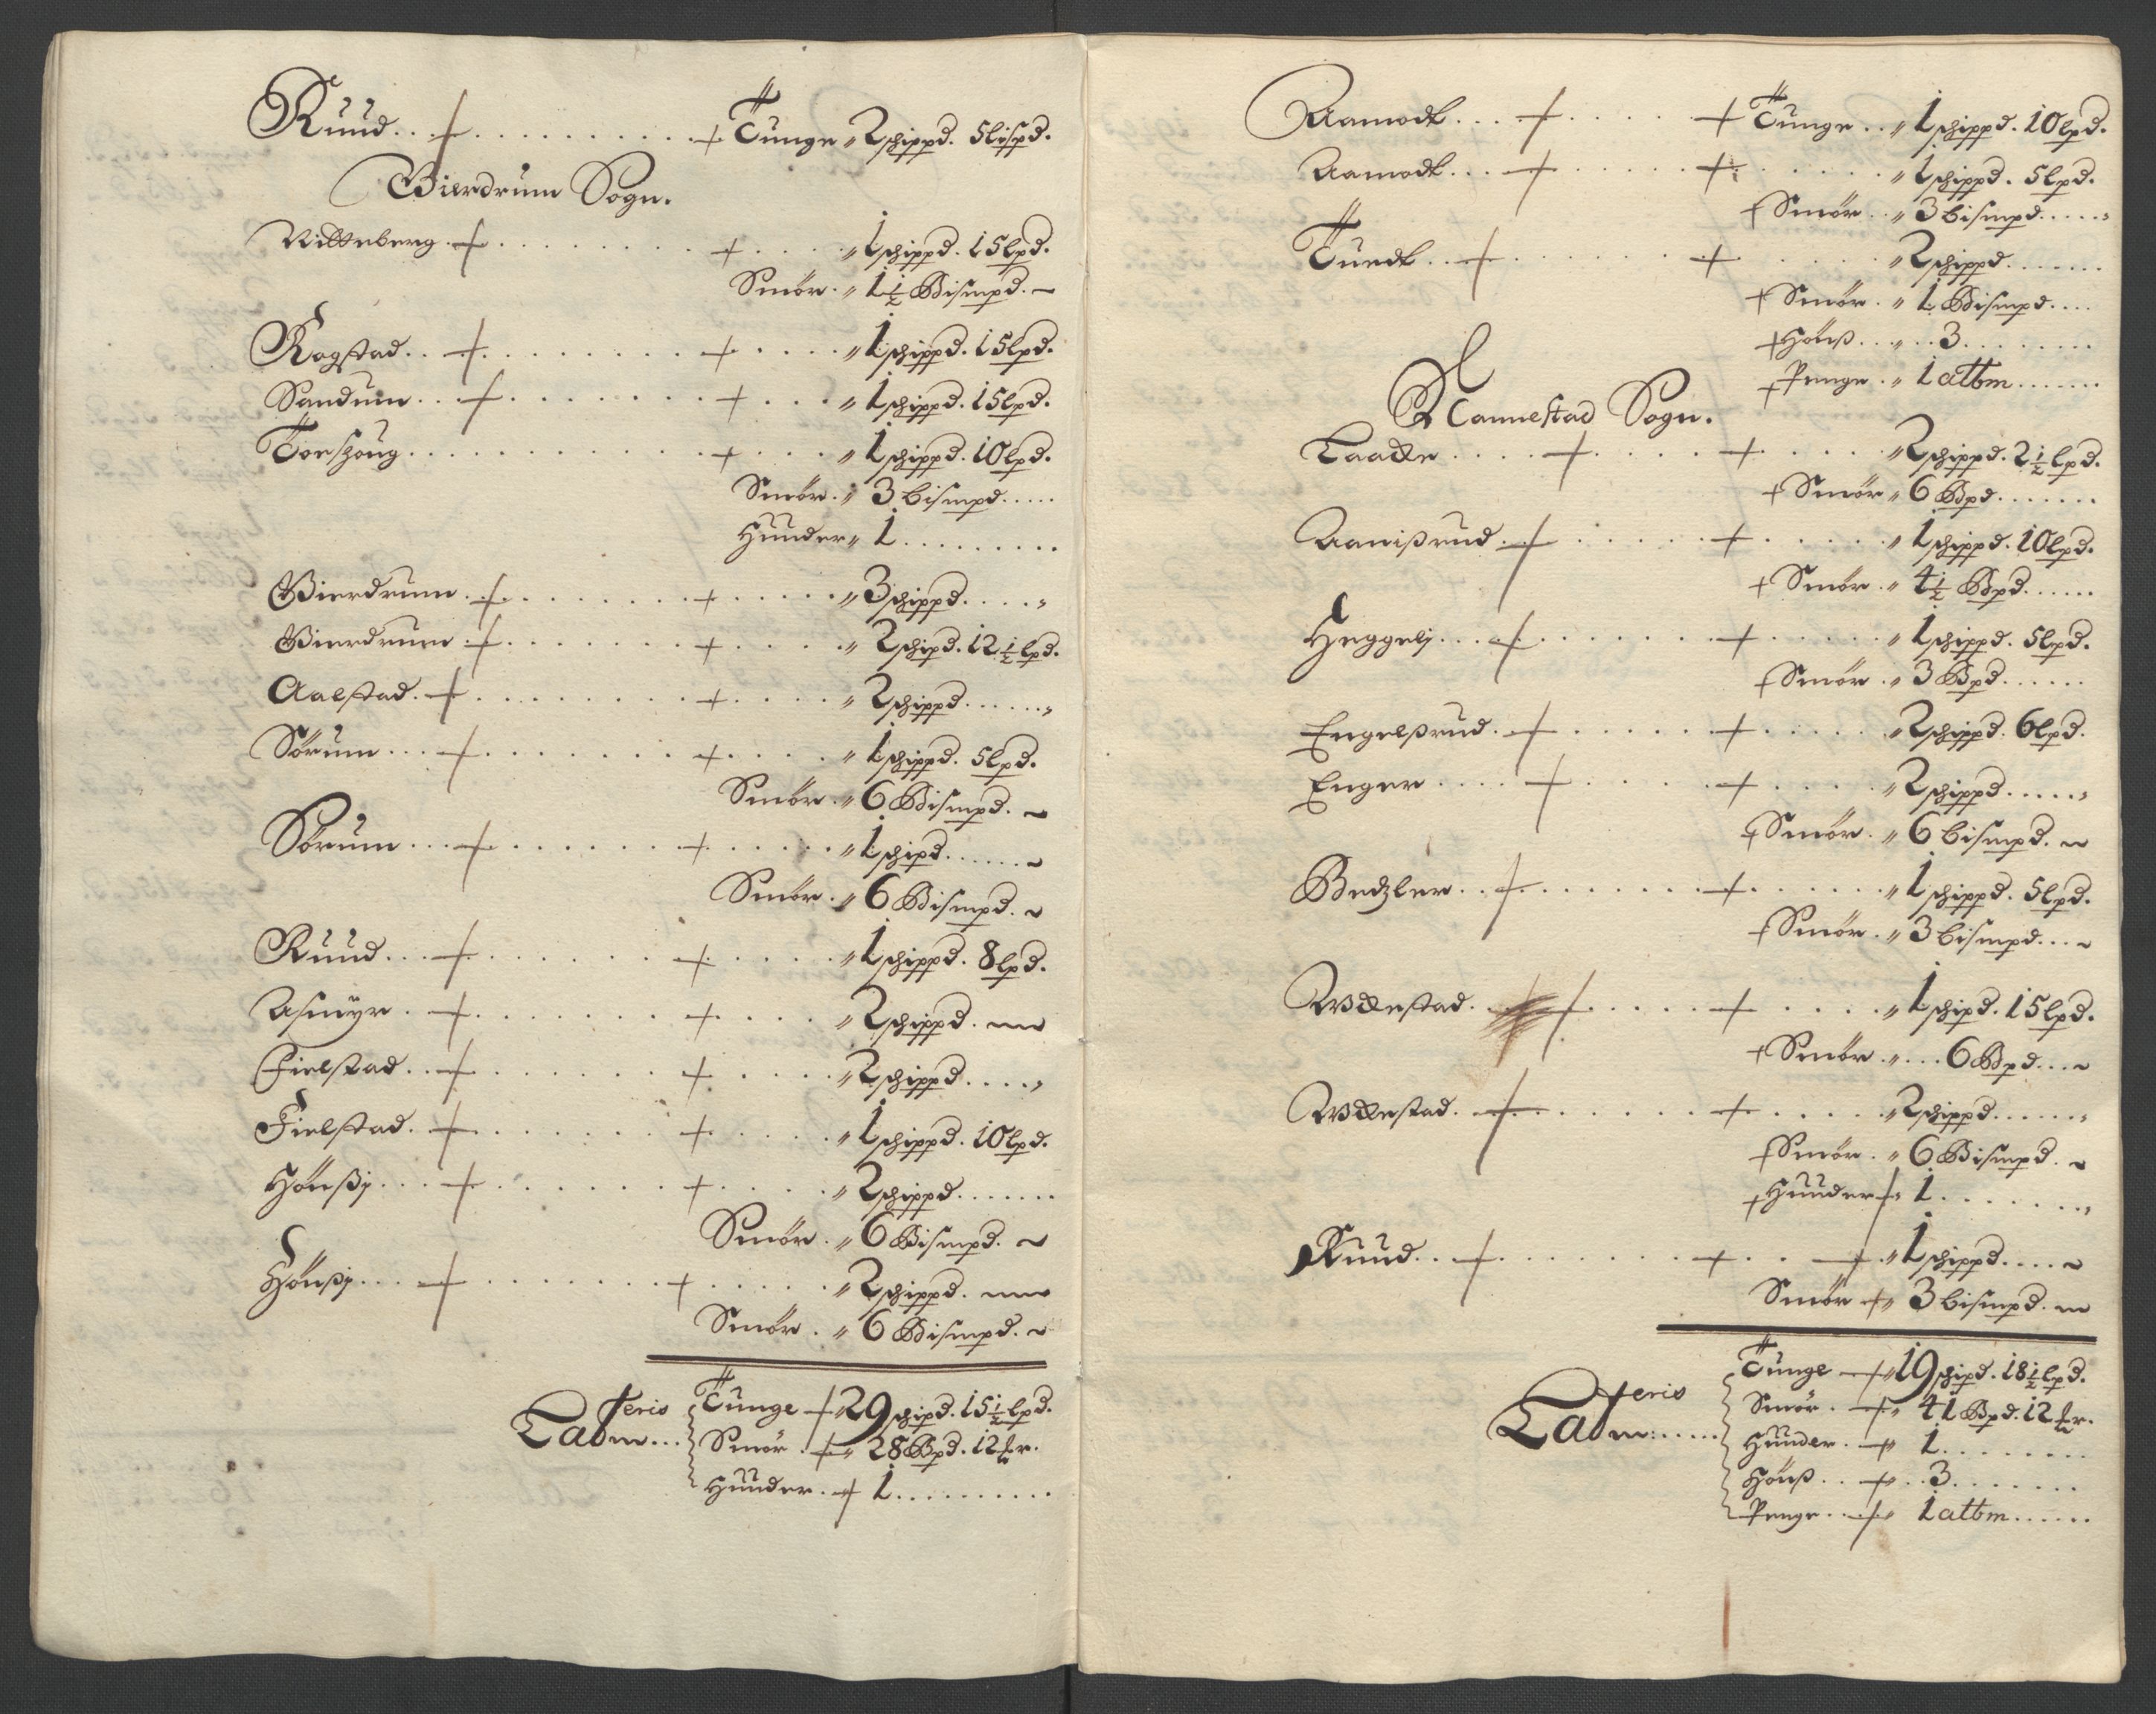 Ruud .. + .......... + Tunge „ 2 schippd. 5 lispd.
Bierdrum Sogn.
Ritteberg . + ........ + .... „ 1 schippd. 15 lpd.
Smör . „ 1½ Bismpd. ~
Rogstad .. + ........ + .... „ 1 schippd. 15 lpd.
Sandum .. + ....... + ... „ 1 schippd. 15 lpd.
Torshoug .......... + ... „ 1 schippd. 10 lpd.
Smör . „ 3 bismpd .....
Huuder „ 1 .........
Bierdrum . + ....... + ..... „ 3 schippd .... „
Bierdrum . + ....... + .... „ 2 schipd. 12½ lpd.
Aalstad . + ........ + .... „ 2 schippd ...... „
Sörum ... + ....... + .... „ 1 schippd. 5 lpd.
Smör . „ 6 Bismpd. ~
Sörum ... + ....... + ..... „ 1 schipd ...... ~
Smör . „ 6 Bismpd. ~
Ruud ... + ...... + .... „ 1 schippd. 8 lpd.
Asmyr . + ....... + .... „ 2 schippd. ~
Fielstad .. + ...... + .... „ 2 schippd .... „
Fielstad . + ...... + .... „ 1 schippd. 10 lpd.
Hönsj ... + ...... + .... „ 2 schippd .......
Smör . „ 6 Bismpd. ~
Hönsj ... + ....... + .... „ 2 schippd. ~
Smör . „ 6 Bismpd. ~
Lateris Tunge + „ 29 schipd. 15½ lpd.
Smör . + „ 28 Bpd. 12 ℔r.
Huuder . + 1 ..........
Aamodt .... + ..... + Tunge .. „ 1 schippd. 10 lpd.
Aamodt ... + ..... + ..... „ 1 schippd. 5 lpd.
+ Smör .. „ 3 bismpd ..... „
Tuedt .. + ....... + ..... „ 2 schippd .......
+ Smör . „ 1 Bismpd ....
+ Hönß ... „ .. 3 ........
+ Penge . „ 1 altbm ......
Nannestad Sogn.
Laache .... + ..... + ..... „ 2 schippd. 2½ lpd.
+ Smör „ 6 Bpd .......
Aanißrud . + ...... + ..... „ 1 schippd. 10 lpd.
+ Smör . „ 4½ Bpd ......
Heggelj ... + ....... + ..... „ 1 schippd. 5 lpd.
+ Smör . „ 3 Bpd ......
Engelßrud . + ...... + ..... „ 2 schippd. 6 lpd.
Enger .... + ...... + .... „ 2 schippd ..... „
+ Smör . „ 6 bismpd. ~
.. + ....... + ..... „ 1 schippd. 5 lpd.
+ Smör . „ 3 bismpd ... ~
. + .... + .... „ 1 schipd. 15 lpd.
+ Smör . „ ... 6 Bpd ... ~
. + ...... + .... „ 2 schippd ...... „
+ Smör . „ 6 Bismpd. ~
+ Huuder + „ 1 ....... „
Ruud .. + ....... + .. + . „ 1 schippd .... ~
Smör + „ 3 bismpd. ~
Lateris Tunge + „ 19 schipd. 18½ lpd.
Smör . + „ 41 Bpd. 12 ℔r.
Huuder . + „ 1 ........
Hönß .. + .. 3 .......
Penge .. + „ 1 altbm ......